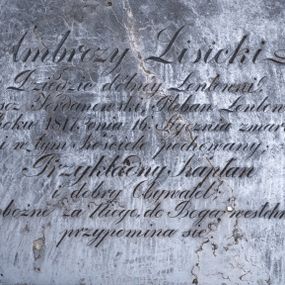 Ambrozy Lisicki
Dziedzic dóbr tey Lentowni,
Jordanowski, Pleban Lentow
roku 1817. dnia 16. Stycznia zmarł
i w tym kościele pochowany.
Przykładny kapłan
i dobry Obywatel;
za Niego do Boga westchn
przypomina się.